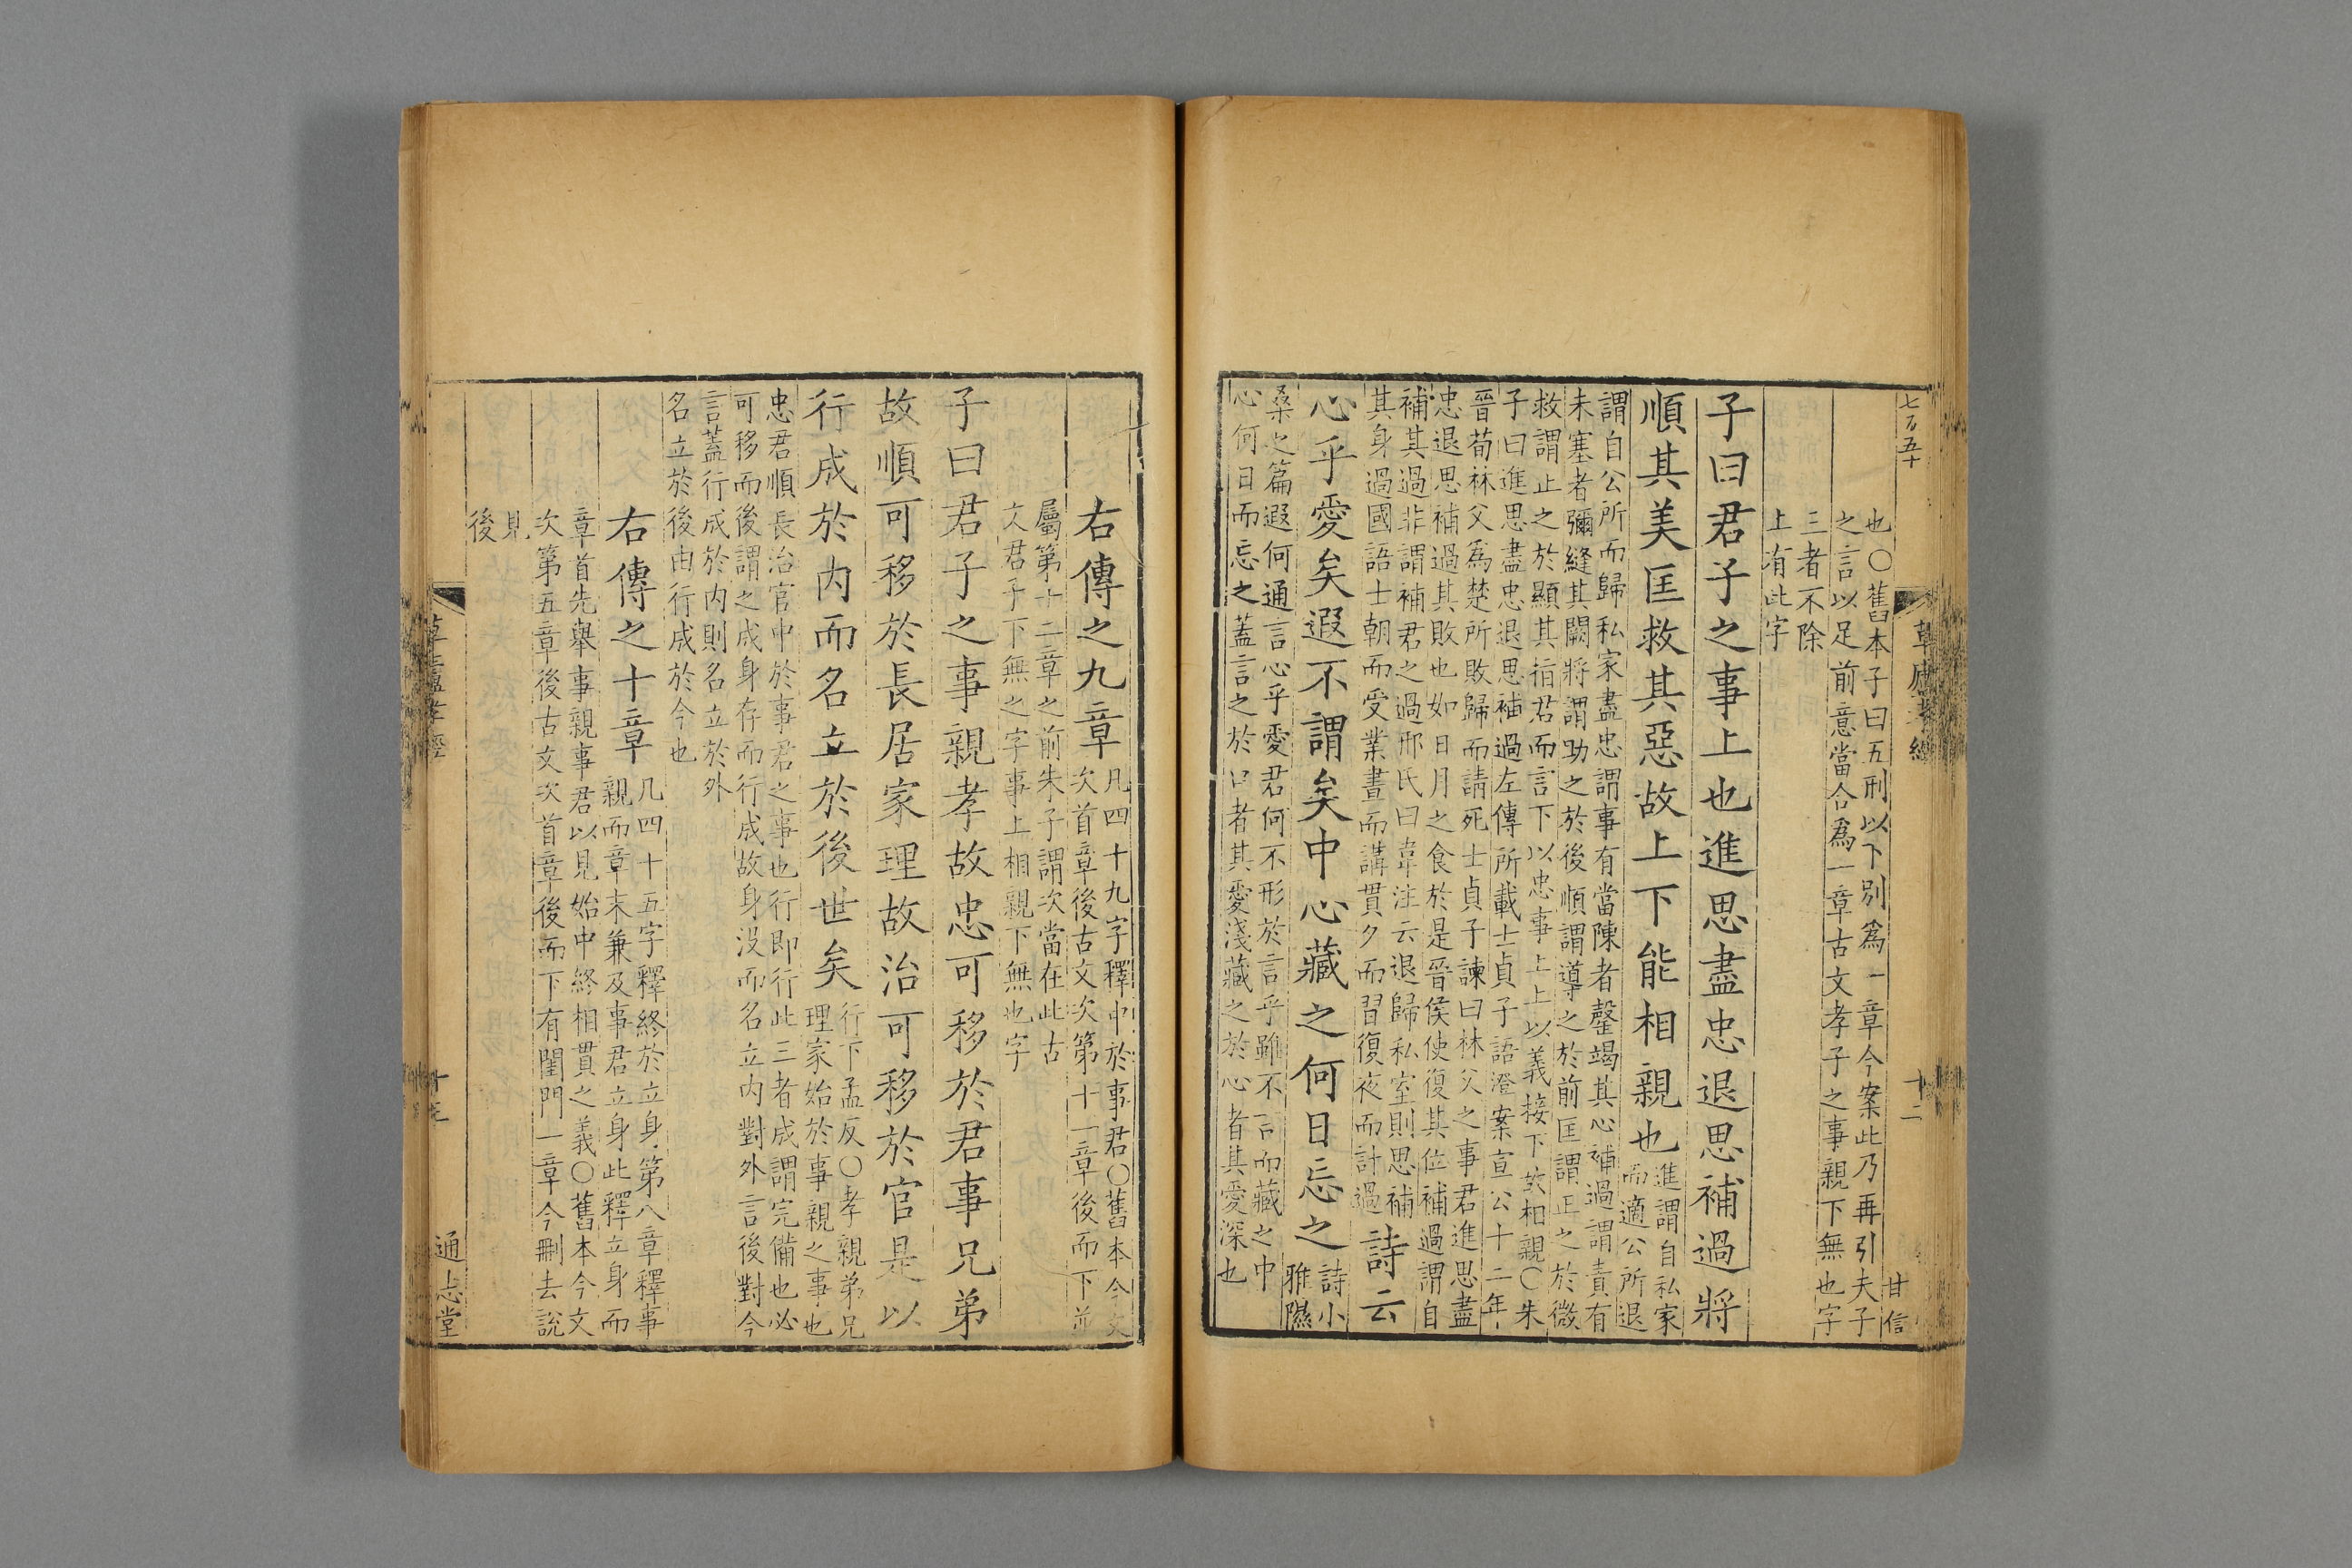 七百五十
草廬孝經
十二
甘信
也○舊本子曰五刑以下別爲一章今案此乃再引夫子
之言以足前意當合爲一章古文孝子之事親下無也字
三者不除
上有此字
子曰君子之事上也進思盡忠退思補過將
順其美匡救其惡故上下能相親也進謂自私家
而適公所退
謂自公所而歸私家盡忠謂事有當陳者罄竭其心補過謂責有
未塞者彌縫其闕將謂助之於後順謂導之於前匡謂正之於微
救謂止之於顯其指君而言下以忠事上上以義接下故相親○朱
子曰進思盡忠退思補過左傳所載士貞子語澄案宣公十二年
晉荀林父爲楚所敗歸而請死士貞子諫曰林父之事君進思盡
忠退思補過其敗也如日月之食於是晉侯使復其位補過謂自
補其過非謂補君之過邢氏曰韋注云退歸私室則思補
其身過國語士朝而受業晝而講貫夕而習復夜而計過
詩云
心乎愛矣遐不謂矣中心藏之何日忘之詩小
雅隰
桑之篇遐何通言心乎愛君何不形於言乎雖不言而藏之中
心何日而忘之蓋言之於口者其愛淺藏之於心者其愛深也
右傳之九章凡四十九字釋中於事君○舊本今文
次首章後古文次第十一章後而下並
屬第十二章之前朱子謂次當在此古
文君子下無之字事上相親下無也字
子曰君子之事親孝故忠可移於君事兄弟
故順可移於長居家理故治可移於官是以
行成於內而名立於後世矣行下孟反○孝親弟兄
理家始於事親之事也
忠君順長治官中於事君之事也行即行此三者成謂完備也必
可移而後謂之成身存而行成故身沒而名立內對外言後對今
言蓋行成於內則名立於外
名立於後由行成於今也
右傳之十章凡四十五字釋終於立身第八章釋事
親而章末兼及事君立身此釋立身而
章首先舉事親事君以見始中終相貫之義○舊本今文
次第五章後古文次首章後而下有閨門一章今刪去說
見
後
草廬孝經
通志堂